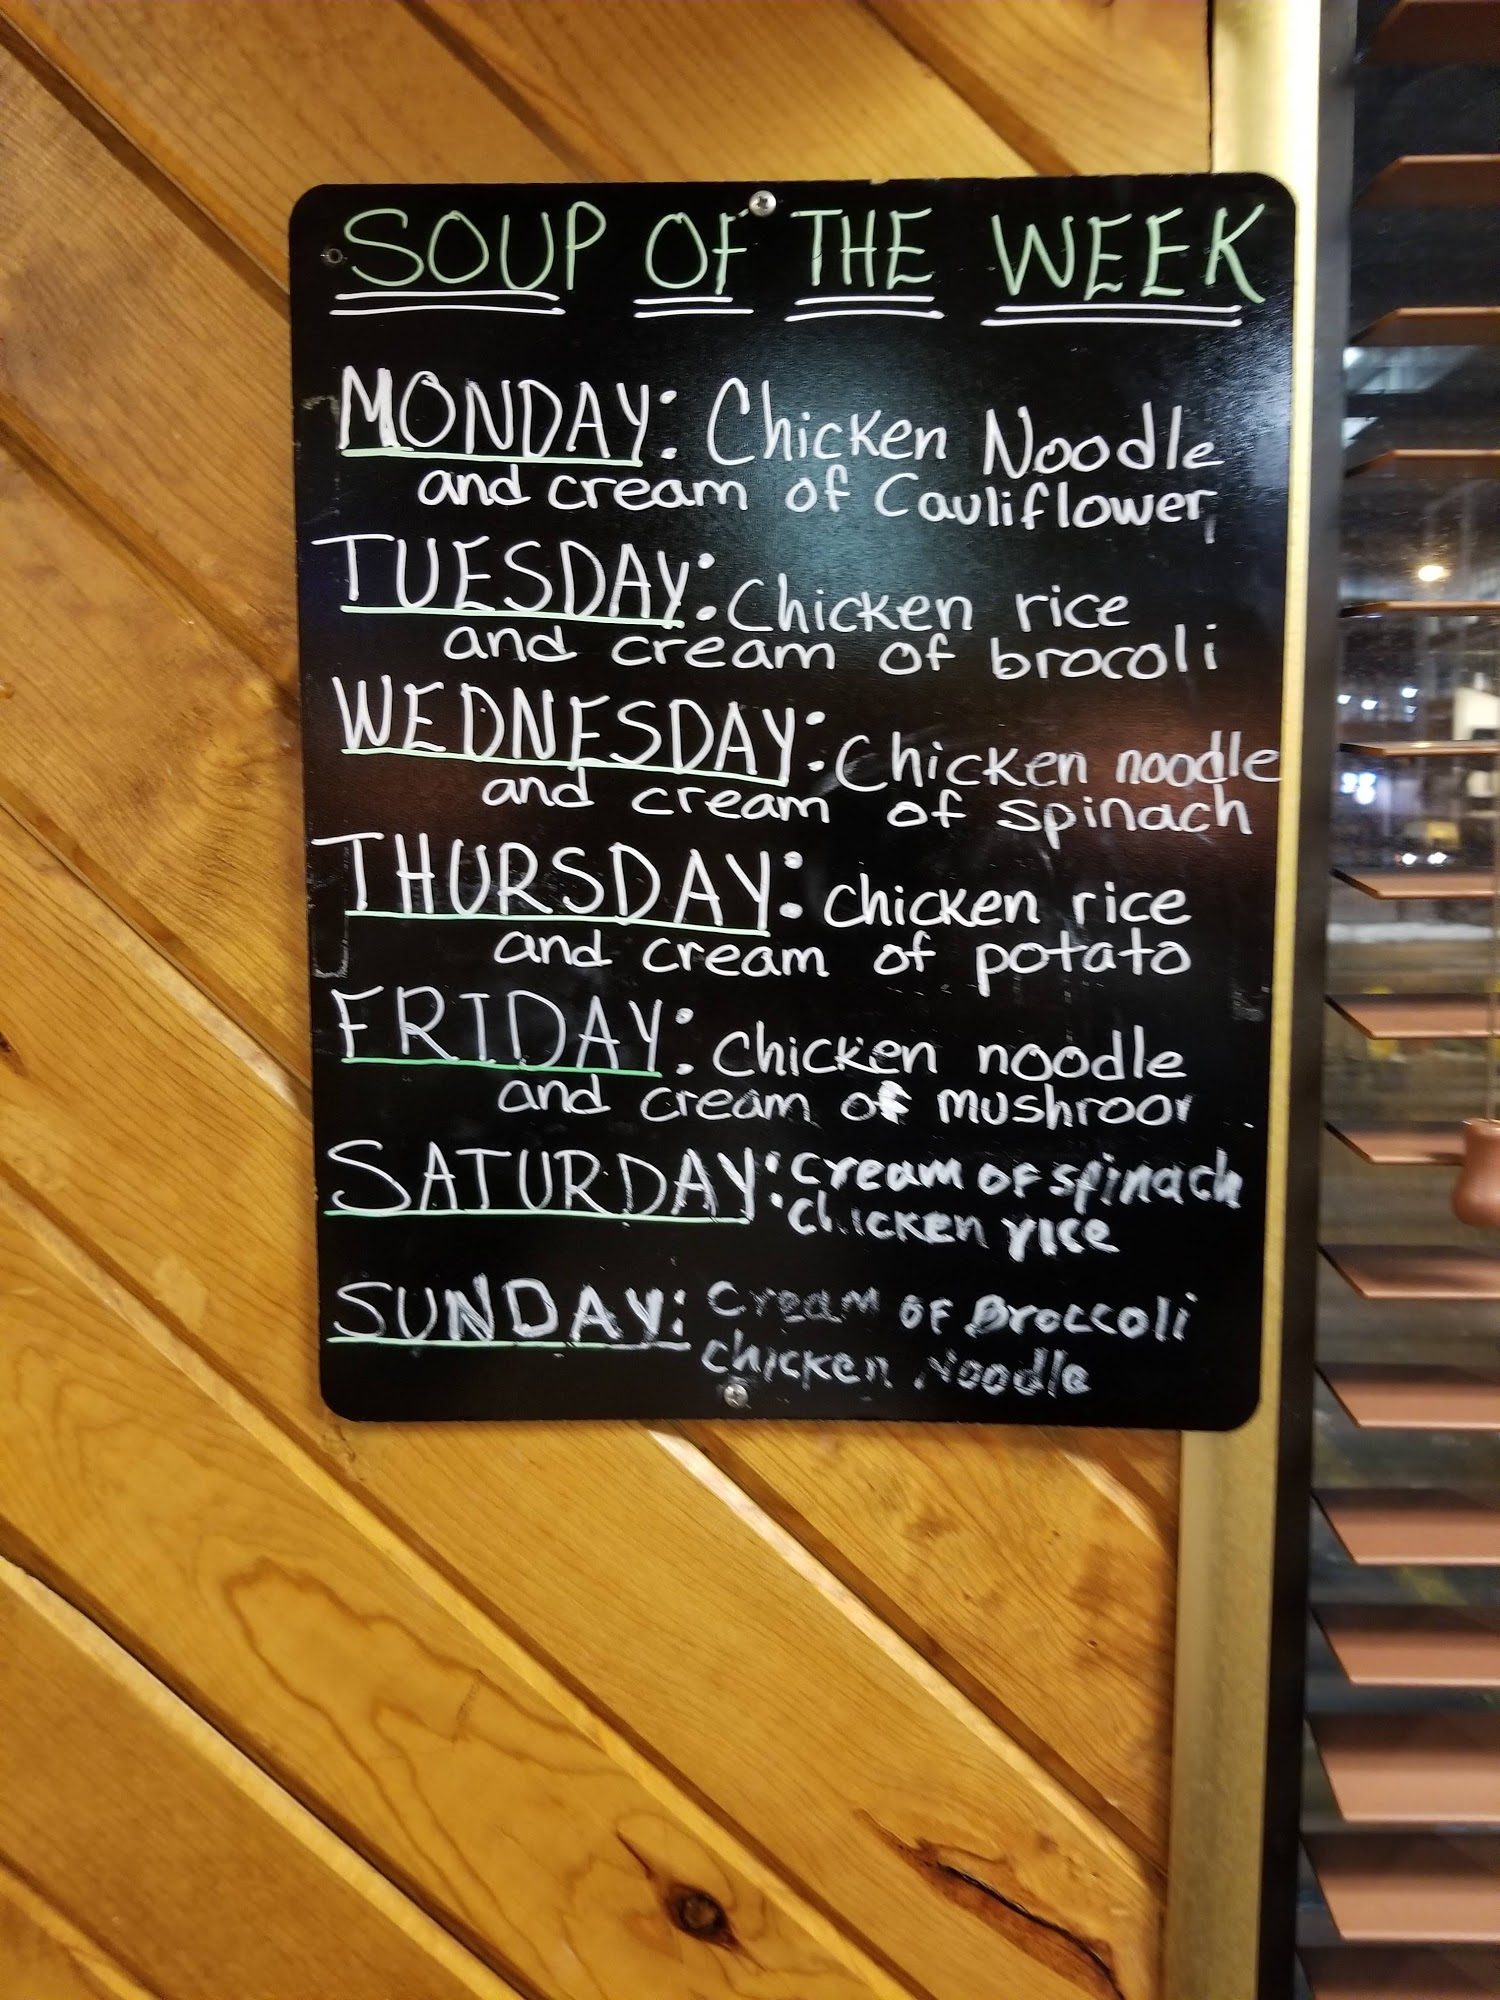 SOUP OF THE WEEK
MONDAY: Chicken Noodle
and cream of Cauliflower
TUESDAY: Chicken rice
and cream of brocoli
WEDNESDAY: Chicken noodle
and cream of spinach
THURSDAY: Chicken rice
and cream of potato
FRIDAY: Chicken noodle
and cream of mushroom
SATURDAY: cream of spinach
chicken rice
SUNDAY: Cream of Broccoli
chicken Noodle